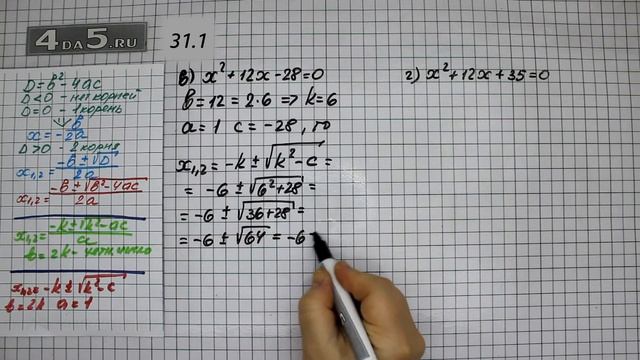 4DA5.RU
31.1
D = b² - 4ac
D<0 - нет корней
D=0 - 1 корень
x = - b/2a
D>0 - 2 корня
x₁,₂ = (-b ± √D)/2a
x₁,₂ = (-b ± √(b² - 4ac))/2a
x₁,₂ = (-k ± √(k² - ac))/a
b = 2k - четн. число
x₁,₂ = -k ± √(k² - c)
b = 2k a = 1
в) x² + 12x - 28 = 0
b = 12 = 2·6 => k = 6
a = 1 c = -28, то
x₁,₂ = -k ± √(k² - c) =
= -6 ± √(6² + 28) =
= -6 ± √(36 + 28) =
= -6 ± √64 = -6
г) x² + 12x + 35 = 0